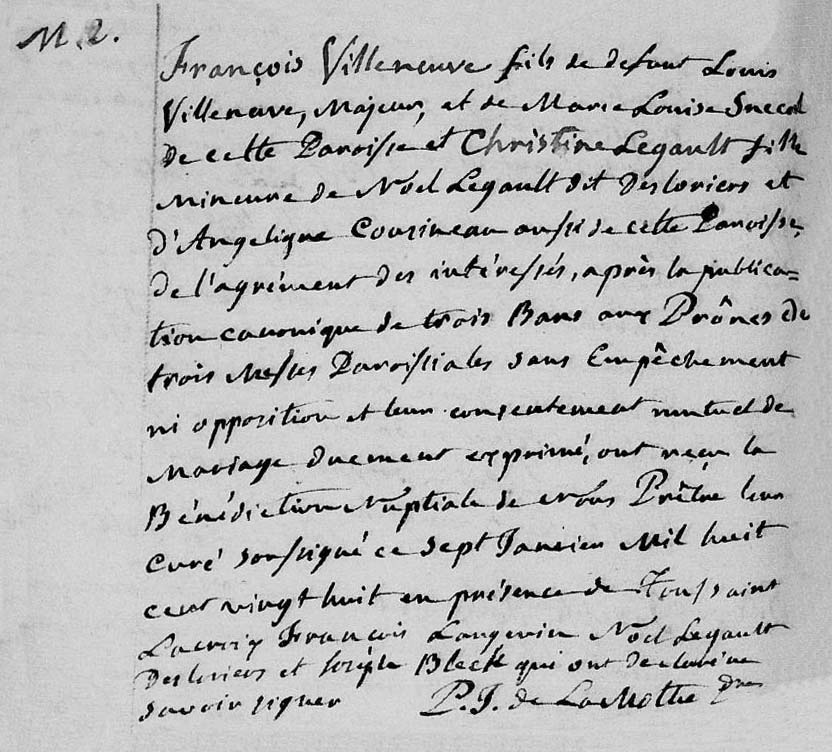 M. 2.
François Villeneuve fils de defunt Louis
Villeneuve, Majeur, et de Marie Louise
de cette Paroisse et Christine Legault fille
Mineure de Noel Legault dit Desloriers et
d'Angelique Cousineau aussi de cette Paroisse,
de l'agrément des intéressés, après la publica=
tion canonique de trois Bans aux Prônes de
trois Messes Paroissiales sans Empêchement
ni opposition et leur consentement mutuel de
Mariage duement exprimé, ont reçu la
Bénédiction Nuptiale de Nous Prêtre leur
curé soussigné ce Sept Janvier Mil huit
cent vingt huit en présence de Toussaint
Lacroix François Langevin Noel Legault
Desloriers et Joseph Bleck qui ont declaré ne
savoir signer P. J. de LaMothe Ptre